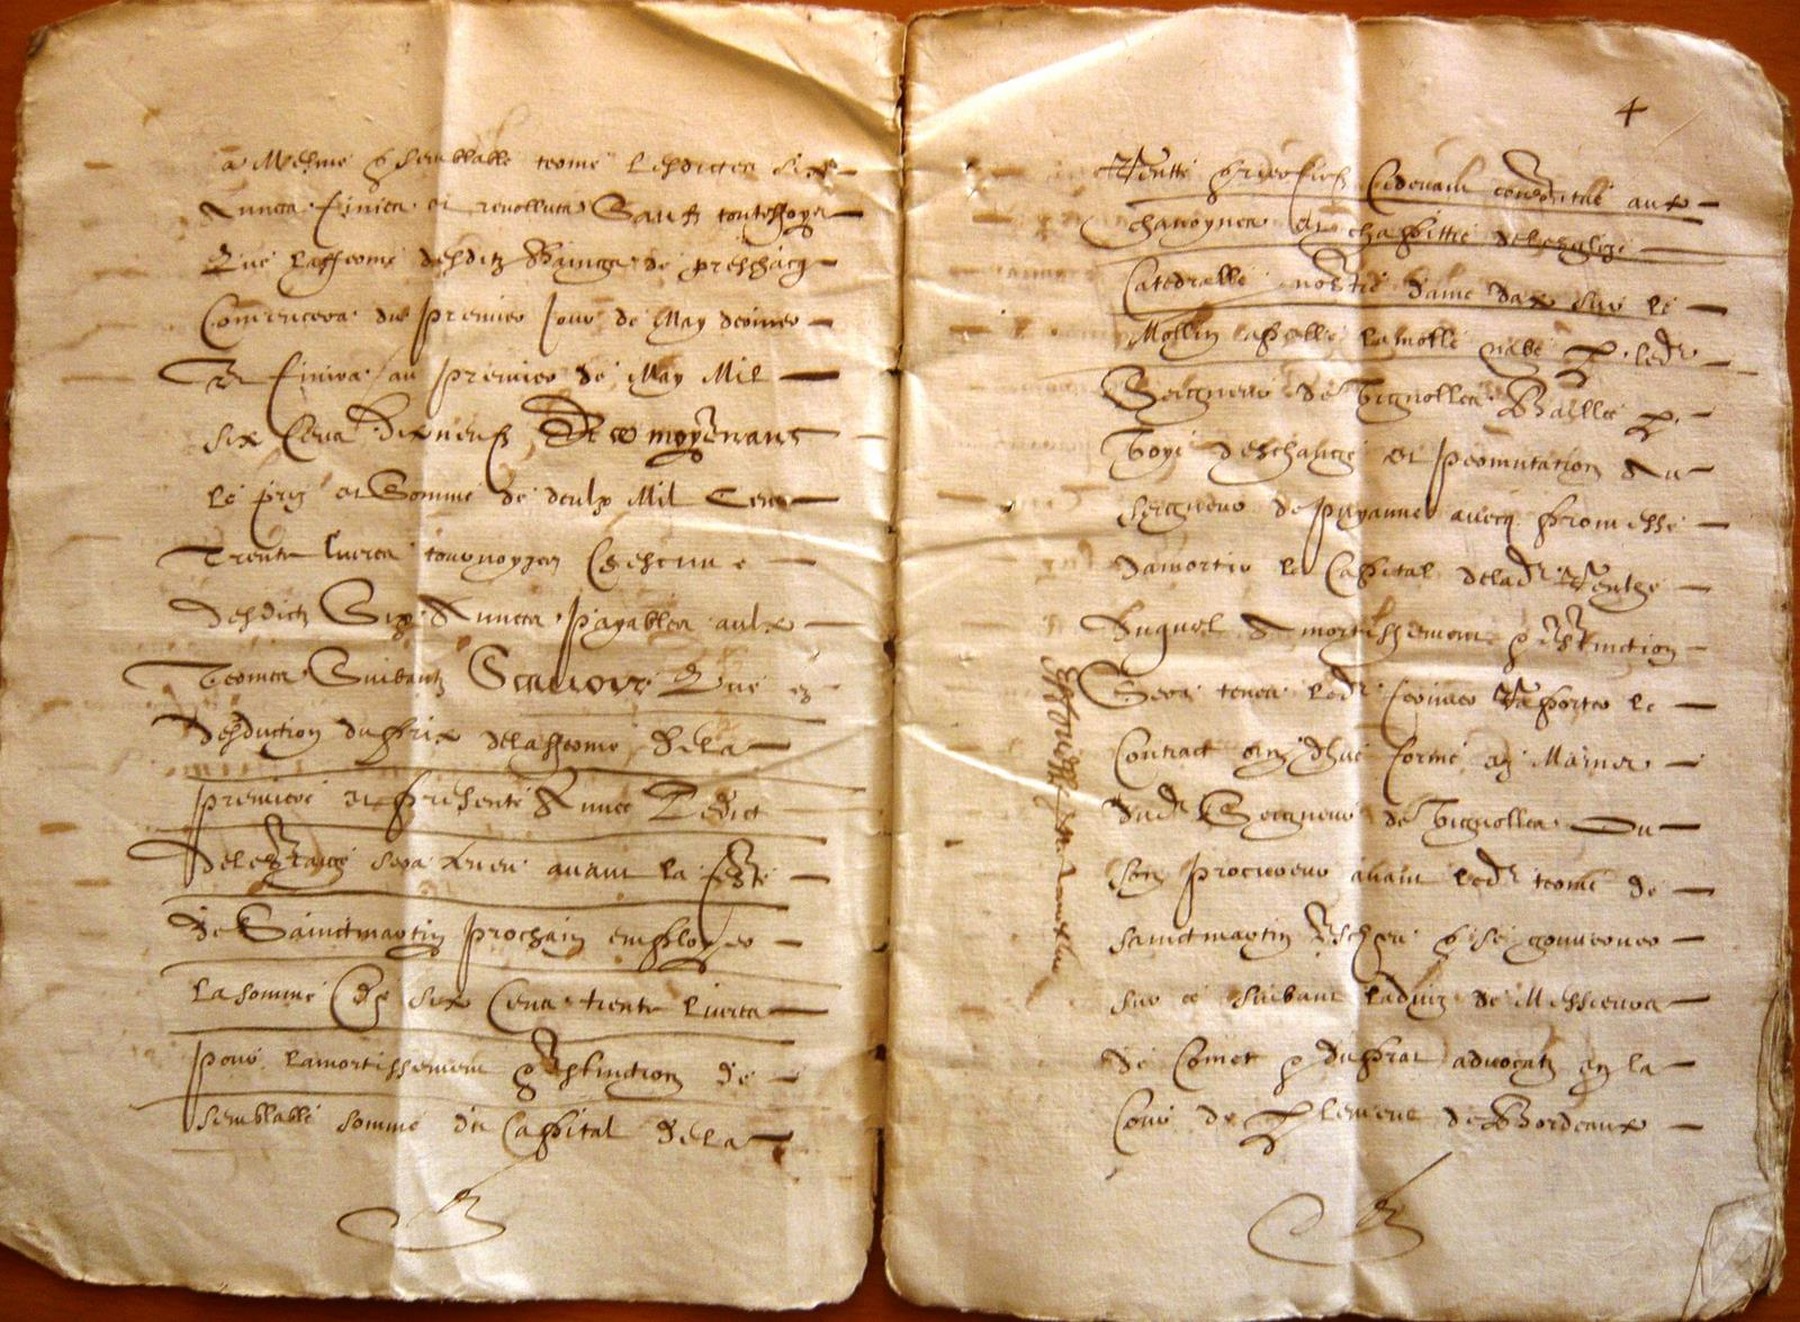 a Mesme & semblable terme lesdictes six
Annees finies et revollues Sauf toutesfoys
Que lafferme desditz Baings de preschacq
Comencera du premier jour de May dernier
Et finira au premier de May Mil
six Cens dix neuf Et ce moyenant
le pris et Somme de deulx Mil Cent
Trente livres tournoyzes Chescune
desdictz Six Annees payables aulx
Termes Suivantz Scavoir Que en
desduction du prix delafferme dela
premiere et presente Annee Ledict
delestaige sera tenu avant la feste
de Sainctmartin prochain employer
la somme de six Cens trente livres
pour lamortissement & extinction de
semblable somme du Cappital dela
4
Rente
chanoynes et chappittre delesglize
Catedralle nostre dame dax sur le
Mollin appellé lamolle par led
Seigneur de Vignolles Baillee par
Voye deschange et permutation Au
seigneur de puyanne avecq promesse
damortir le Cappital delad Rente
Auquel Amortissement & extinction
Sera tenu led fermier Raporter le
Contract en deue forme es Mains
dud Seigneur de Vignolles Ou
son procureur avant led terme de
sainctmartin & se gouverner
sur ce suivant ladviz de Messieurs
de Comet & duprat advocatz en la
Cour de Parlement de Bordeaux